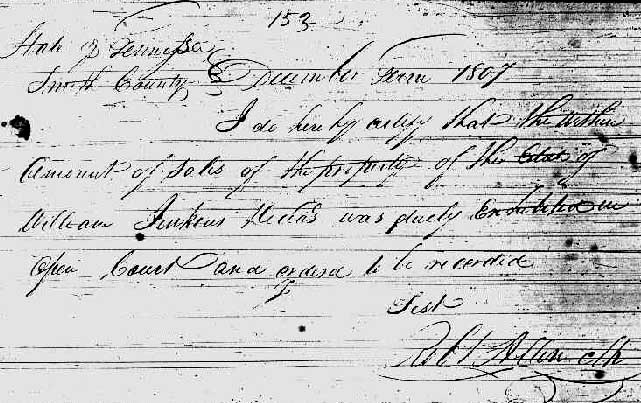 153
State of Tennessee
Smith County December Term 1807
I do hereby certify that the within
amount of Sales of the property of the Estate of
William Jenkins Decd. was duely Exhibited in
Open Court and orderd to be recorded
Test
Robt. Allen Clk